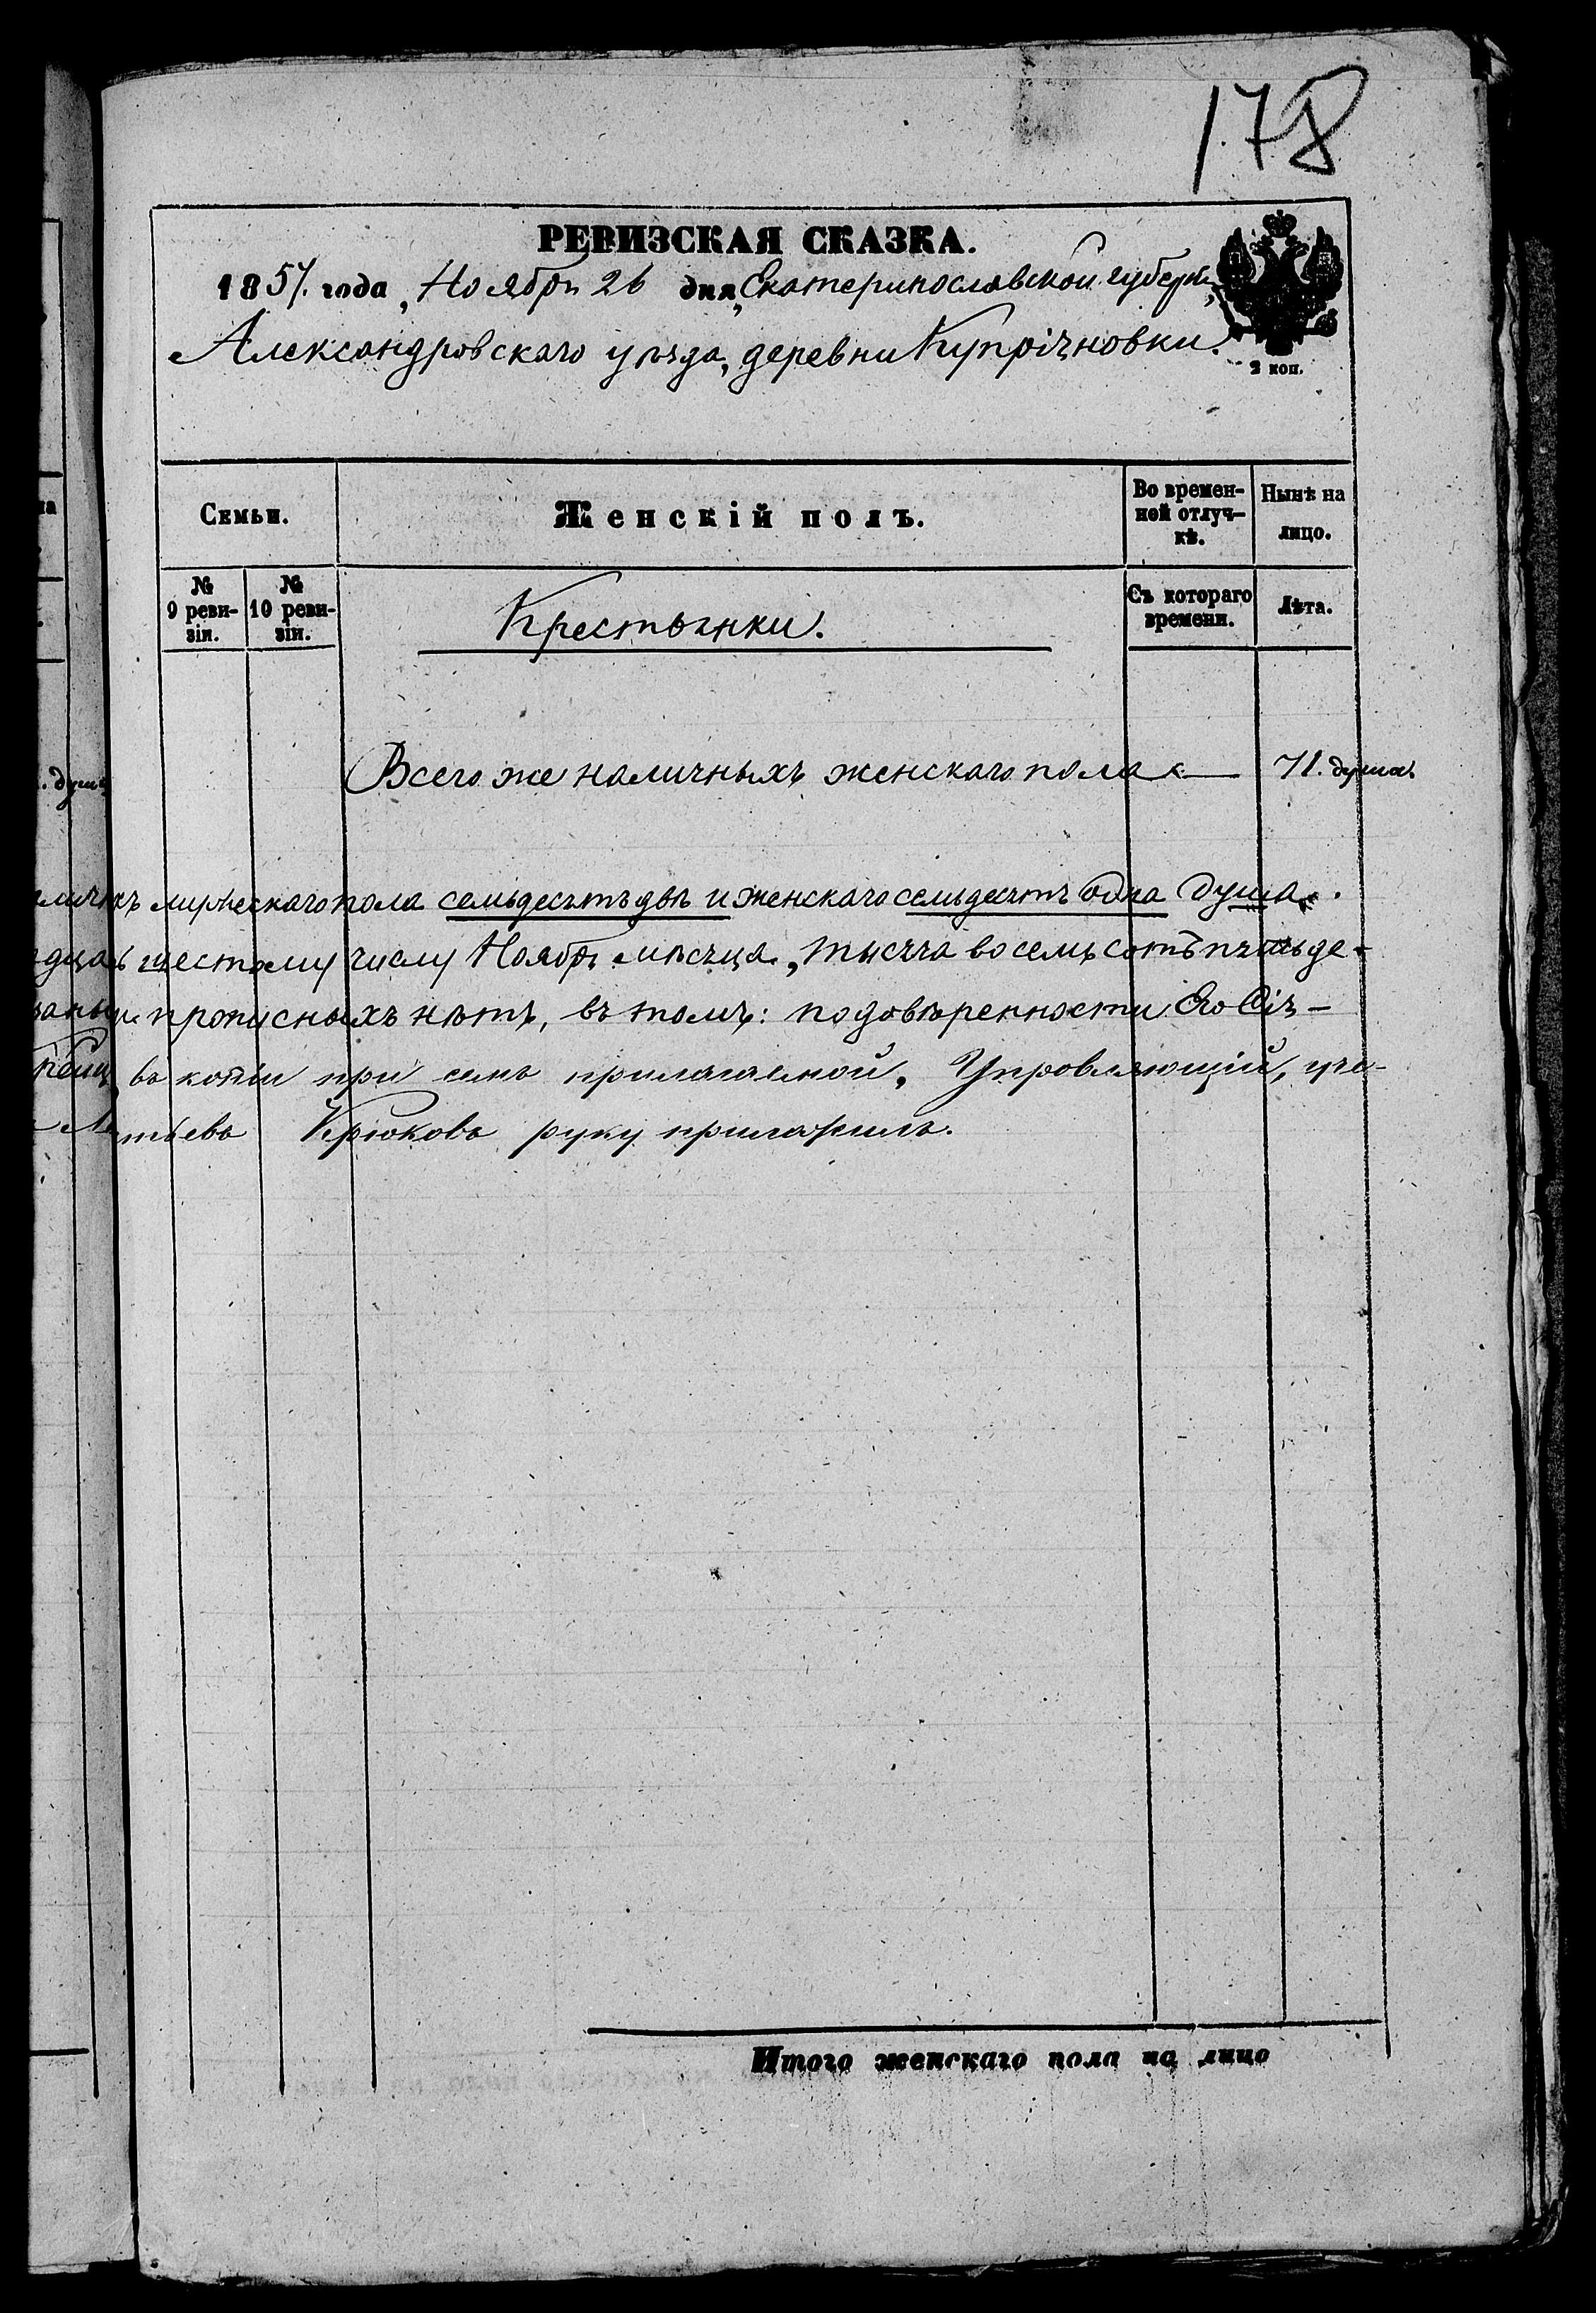 178
РЕВИЗСКАЯ СКАЗКА.
1857. года, Ноября 26 дня, Екатеринославской губерніи,
Александровскаго уѣзда, деревни Купріяновки.
2 коп.
Семьи.
Женскій полъ.
Во времен-
ной отлуч-
кѣ.
Нынѣ на
лицо.
№
9 реви-
зіи.
№
10 реви-
зіи.
Крестьянки.
Съ котораго
времени.
Лѣта.
Всего же наличныхъ женскаго пола 71. душа.
мужескаго пола семьдесятъ двѣ и женскаго семьдесятъ одна душа.
шестому числу Ноября мѣсяца, тысяча восемь сотъ пятьде-
прописныхъ нѣтъ, въ томъ: по довѣренности Его Сія-
въ копіи при семъ прилагаемой, Управляющій,
Крюковъ руку приложилъ.
Итого женскаго пола на лицо